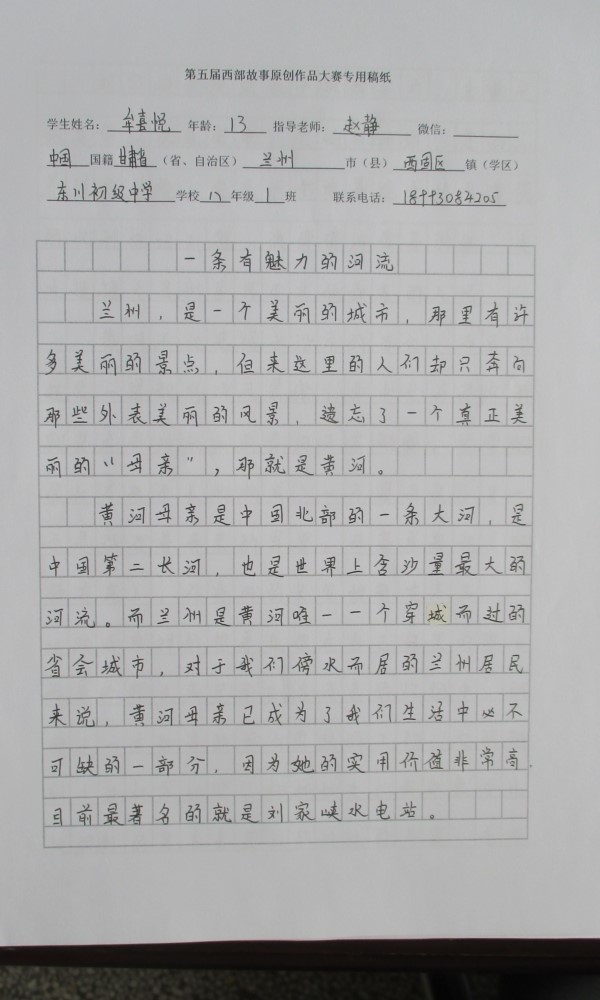 第五届西部故事原创作品大赛专用稿纸
学生姓名：牟喜悦 年龄：13 指导老师：赵静 微信：
中国 国籍 甘肃省（省、自治区） 兰州 市（县） 西固区 镇（学区）
东川初级中学 学校 八 年级 1 班 联系电话：18993084205
一条有魅力的河流
兰州，是一个美丽的城市，那里有许
多美丽的景点，但来这里的人们却只奔向
那些外表美丽的风景，遗忘了一个真正美
丽的“母亲”，那就是黄河。
黄河母亲是中国北部的一条大河，是
中国第二长河，也是世界上含沙量最大的
河流。而兰州是黄河唯一一个穿城而过的
省会城市，对于我们傍水而居的兰州居民
来说，黄河母亲已成为了我们生活中必不
可缺的一部分，因为她的实用价值非常高.
目前最著名的就是刘家峡水电站。